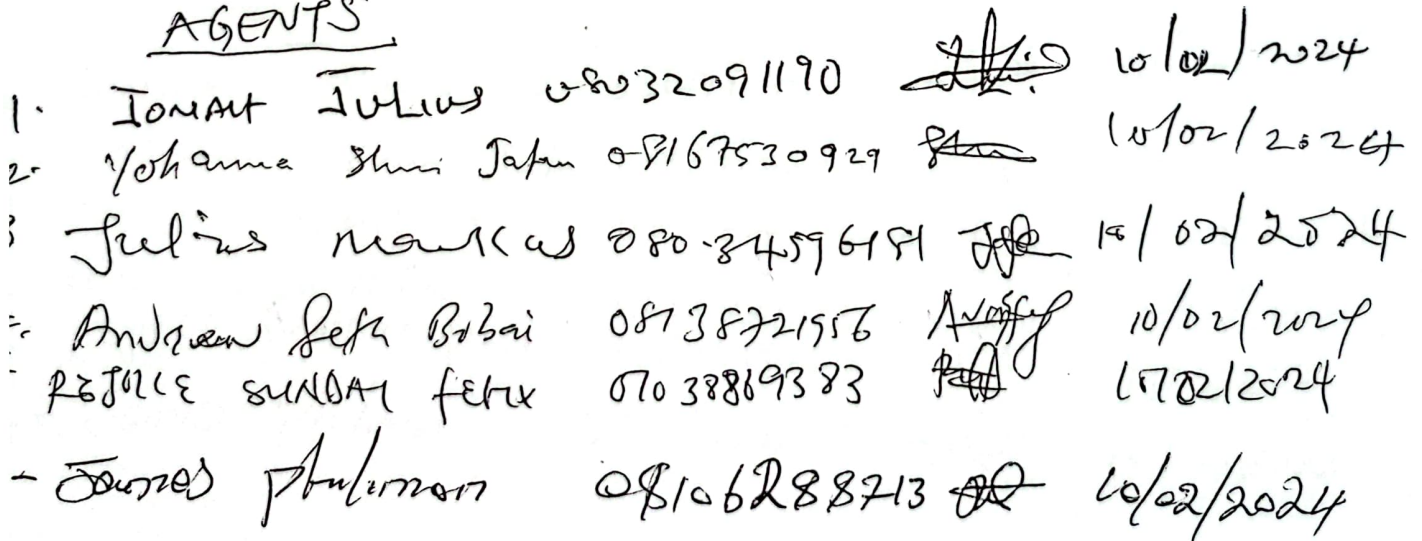 AGENTS
1. JONAH JULIUS 08032091190 10/02/2024
2. Yohanna Jafan 08167530929 10/02/2024
3 Julius Markus 080-34596181 10/02/2024
Andrew Seth Bobai 08138721956 10/02/2024
REJOICE SUNDAY FELIX 07038869383 10/02/2024
- James Philimon 08106288713 10/02/2024